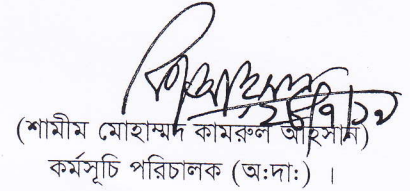 (শামীম মোহাম্মদ কামরুল আহসান)
কর্মসূচি পরিচালক (অ:দা:) ।